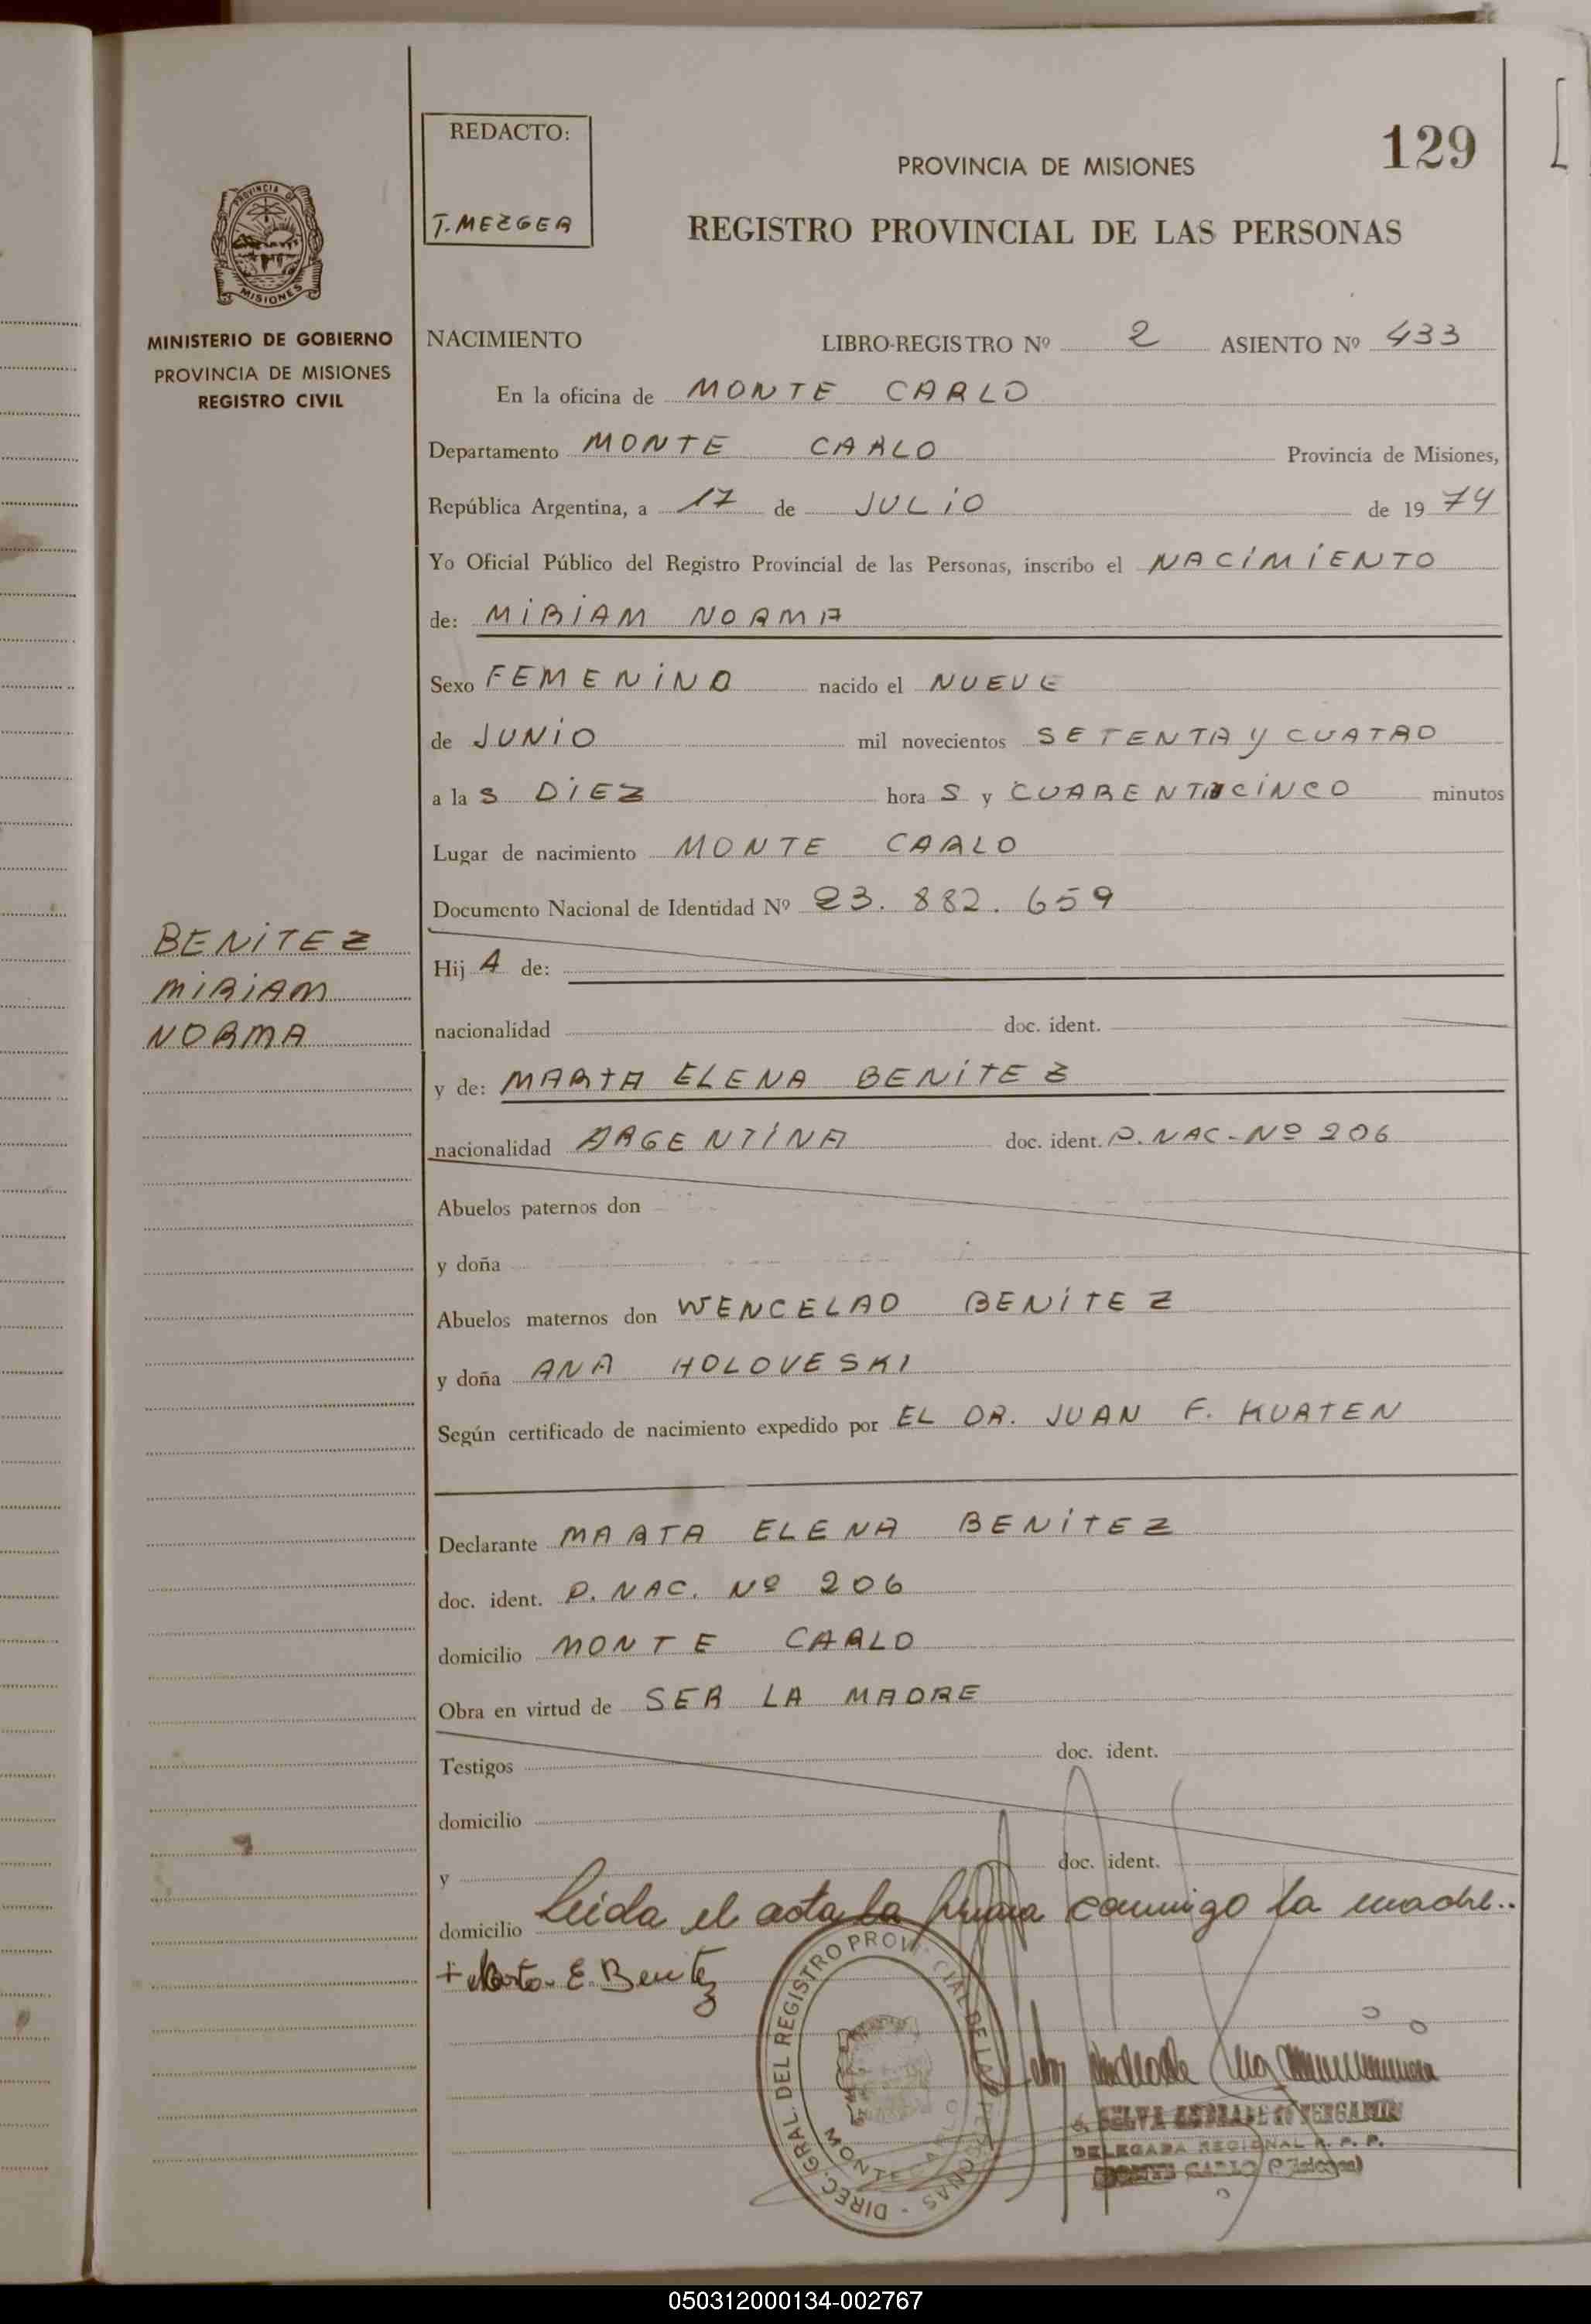 REDACTO:
T. MEZGER
PROVINCIA DE MISIONES
129
REGISTRO PROVINCIAL DE LAS PERSONAS
PROVINCIA DE
MISIONES
MINISTERIO DE GOBIERNO
PROVINCIA DE MISIONES
REGISTRO CIVIL
NACIMIENTO LIBRO-REGISTRO Nº 2 ASIENTO Nº 433
En la oficina de MONTE CARLO
Departamento MONTE CARLO Provincia de Misiones,
República Argentina, a 17 de JULIO de 19 74
Yo Oficial Público del Registro Provincial de las Personas, inscribo el NACIMIENTO
de: MIRIAM NORMA
Sexo FEMENINO nacido el NUEVE
de JUNIO mil novecientos SETENTA Y CUATRO
a la S DIEZ hora S y CUARENTICINCO minutos
Lugar de nacimiento MONTE CARLO
Documento Nacional de Identidad Nº 23.882.659
BENITEZ
MIRIAM
NORMA
Hij A de:
nacionalidad doc. ident.
y de: MARTA ELENA BENITEZ
nacionalidad ARGENTINA doc. ident. P. NAC-Nº 206
Abuelos paternos don
y doña
Abuelos maternos don WENCELAO BENITEZ
y doña ANA HOLOVESKI
Según certificado de nacimiento expedido por EL DR. JUAN F. KURTEN
Declarante MARTA ELENA BENITEZ
doc. ident. P. NAC. Nº 206
domicilio MONTE CARLO
Obra en virtud de SER LA MADRE
Testigos doc. ident.
domicilio
y doc. ident.
domicilio Leida el acta la firma conmigo la madre..
+ Marta E. Benitez
DIREC. GRAL. DEL REGISTRO PROVINCIAL DE LAS PERSONAS -
MONTE CARLO
DELEGADA REGIONAL R. P. P.
MONTE CARLO (Misiones)
050312000134-002767